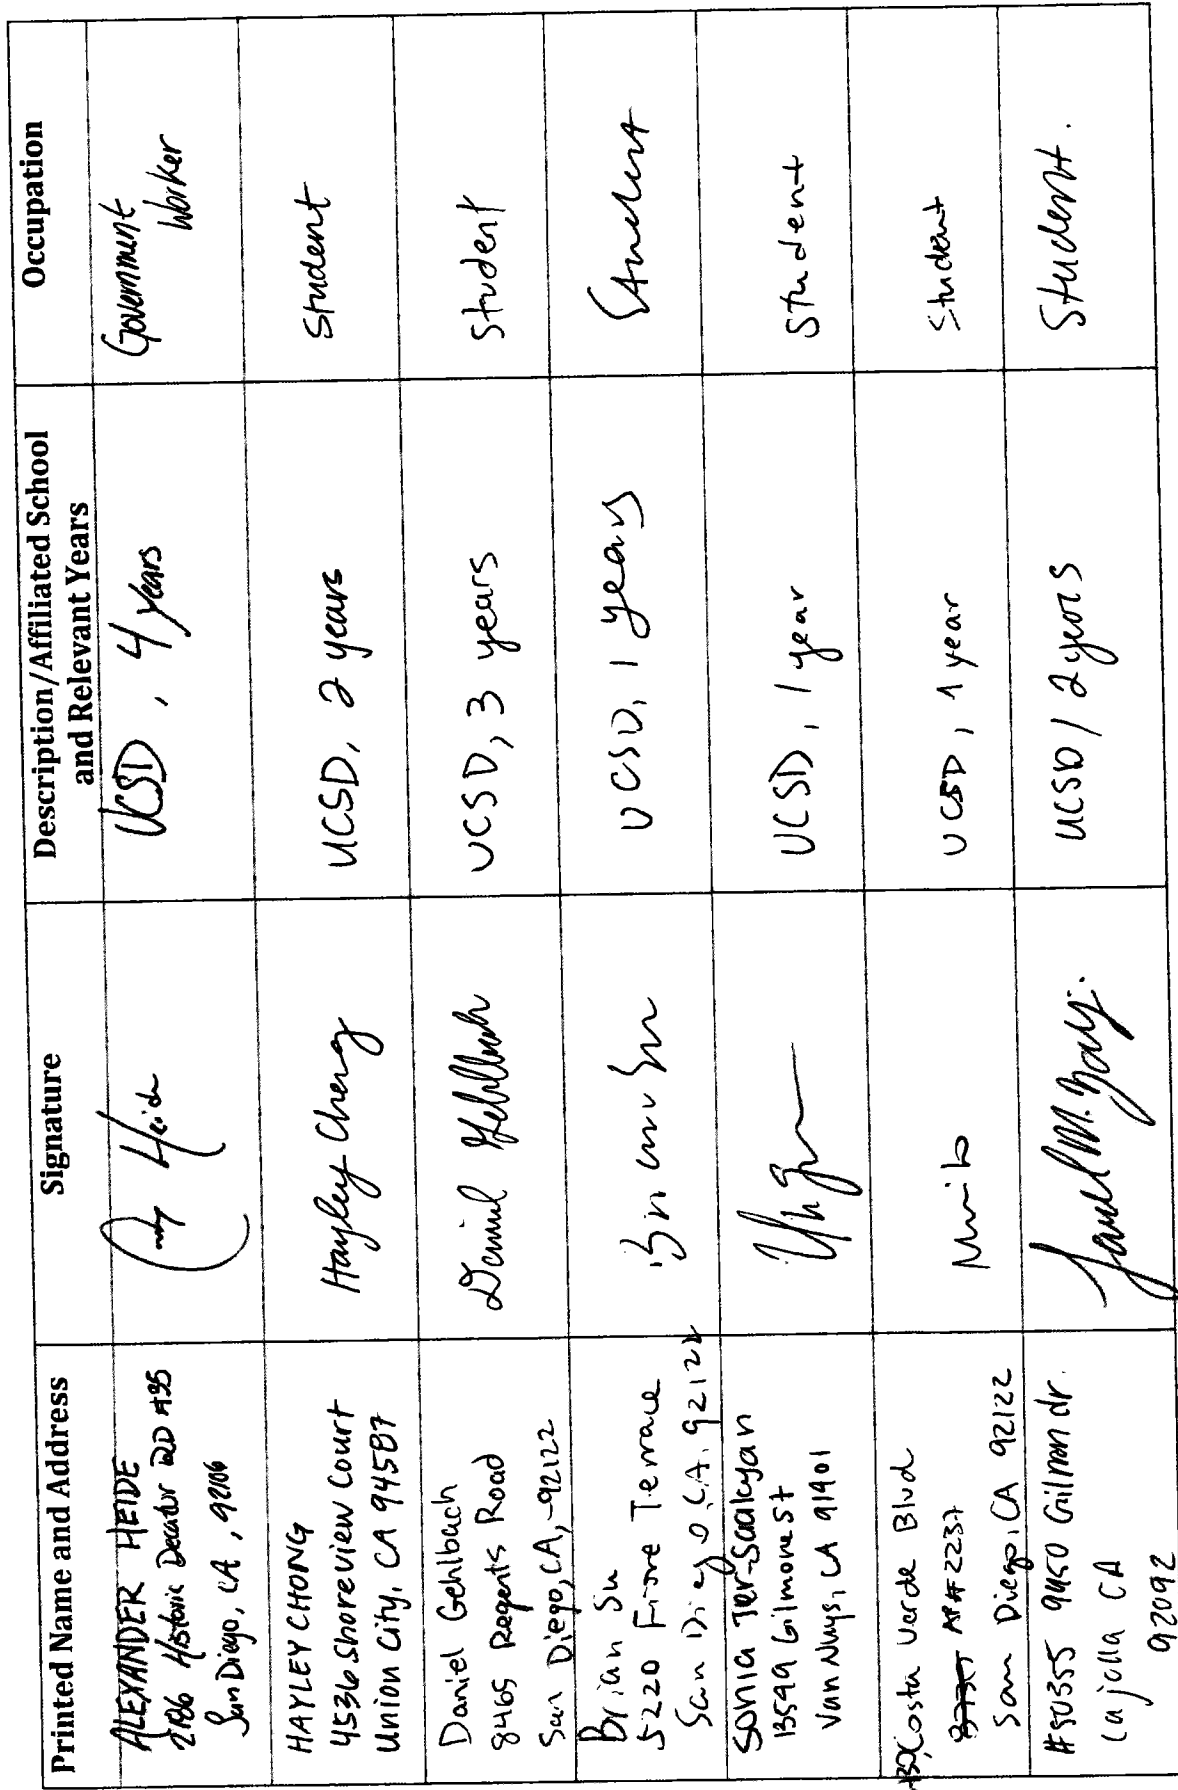 Printed Name and Address
Signature
Description/Affiliated School
and Relevant Years
Occupation
ALEXANDER HEIDE
2186 Historic Decatur RD #35
San Diego, CA, 92106
Heide
UCSD, 4 years
Government
Worker
HAYLEY CHONG
4536 Shoreview Court
Union City, CA 94587
Hayley Chong
UCSD, 2 years
Student
Daniel Gehlbach
8465 Regents Road
San Diego, CA, 92122
Daniel Gehlbach
UCSD, 3 years
Student
Brian Su
5220 Fiore Terrace
San Diego, CA, 92122
Brian Su
UCSD, 1 years
Student
Sonia Ter-Saakyan
13599 Gilmore St
Van Nuys, CA 91401
UCSD, 1 year
Student
Costa Verde Blvd
Apt# 2237
San Diego, CA 92122
UCSD, 1 year
Student
#50355 9450 Gilman dr.
La jolla CA
92092
UCSD / 2 years
Student.